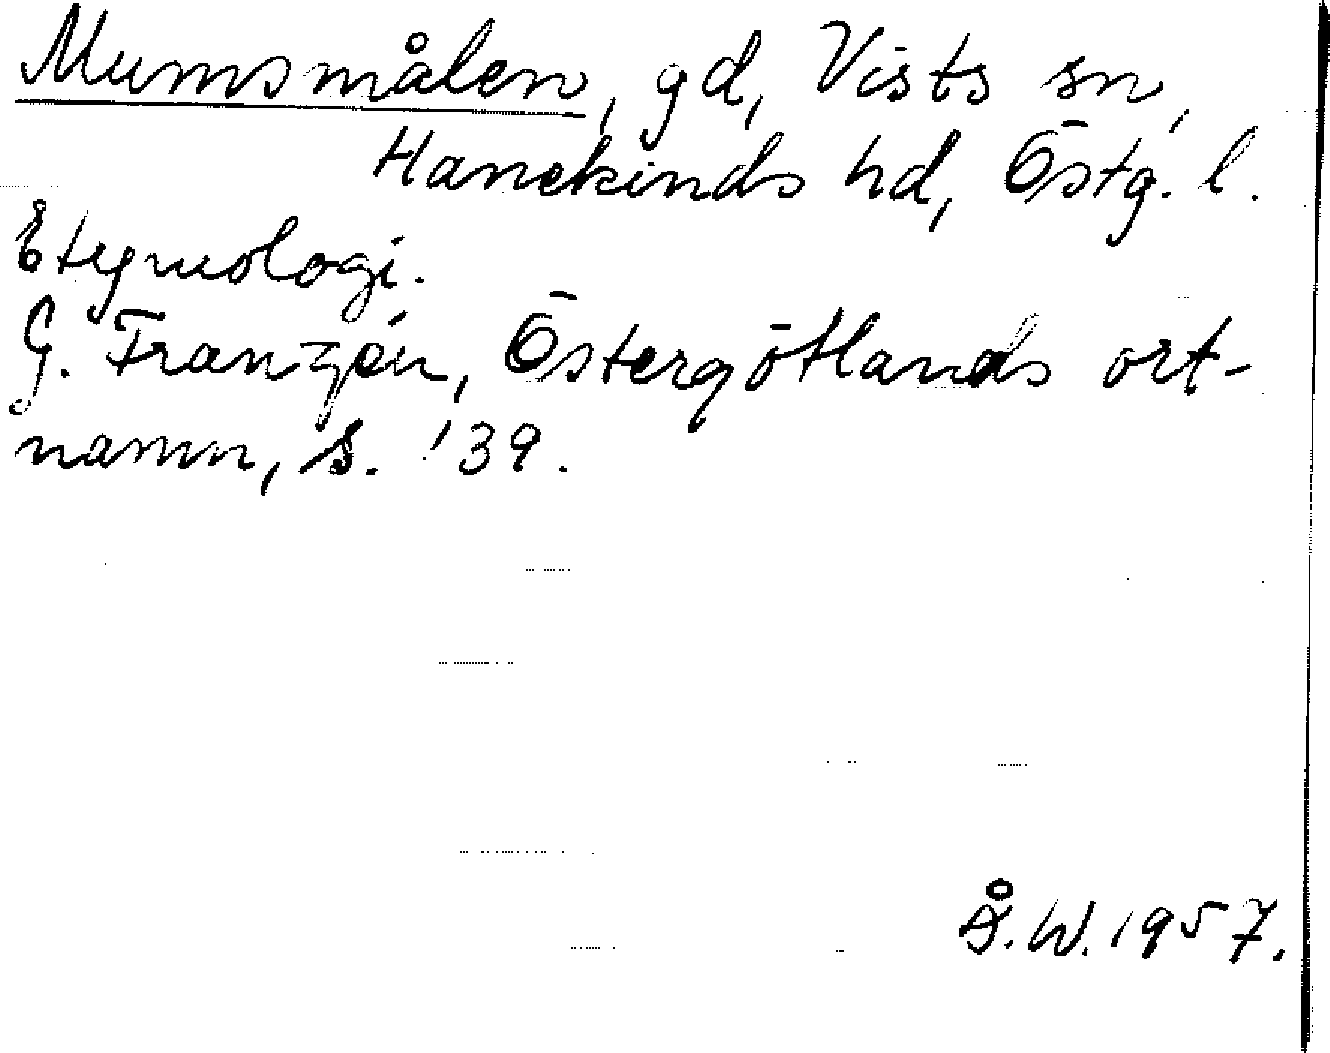 Mumsmålen, gd, Vists sn,
Hanekinds hd, Östg. l.
Etymologi.
G. Franzén, Östergötlands ort-
namn, s. 139.
Å.W. 1957.